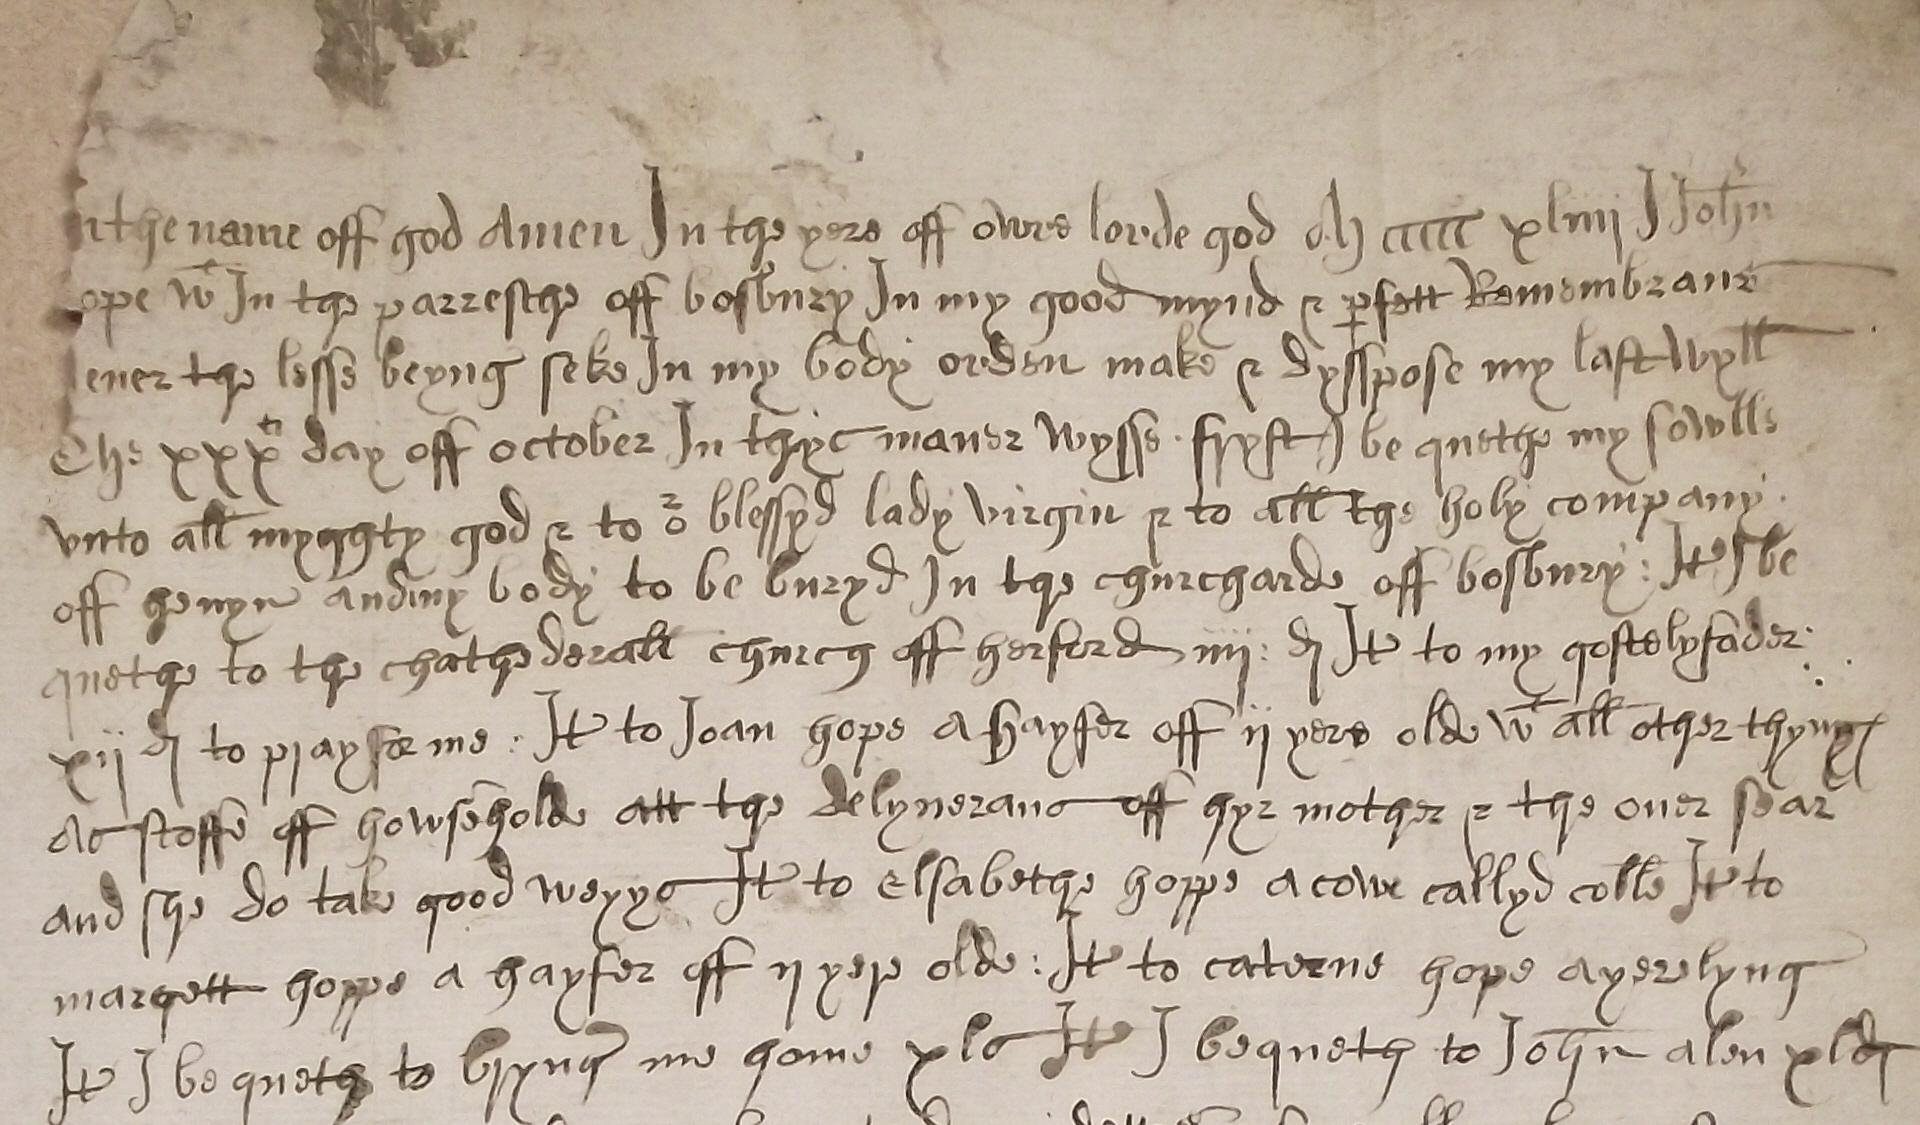 n the name off god Amen In the yere off owre lorde god M ccccc xliiij I John
ope wt In the parresche off bosbury In my good mynd & pfett Remembranc
ener the lesse beyng seke In my body orden make & dysspose my last wyll
The xxxth day off october In thys maner wysse . fryst I be quethe my sowlle
vnto all myghty god & to or blessyd lady virgin & to all the holy company .
off hevyn and my body to be buryd In the churcharde off bosbury : It I be
quethe to the chathederall church off herford iiij : d It to my gostely fader :
xij d to pray for me : It to Joan hope a hayfer off ij yere olde wt all other thyngs
As stoffe off howseholde att the delyverans off hyr mother & the over sear
and she do take good weyys It to elsabethe hoppe a cowe callyd colle It to
margett hoppe a hayfer off ij yere olde : It to caterne hope a yerelyng
It I be queth to bryng me home xls It I bequeth to John alen xld